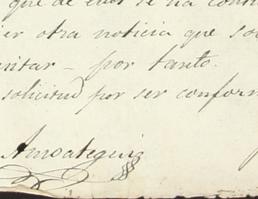 que de ellos se ha
er otra noticia que
por tanto.
solicitud por ser conform
Amoategui